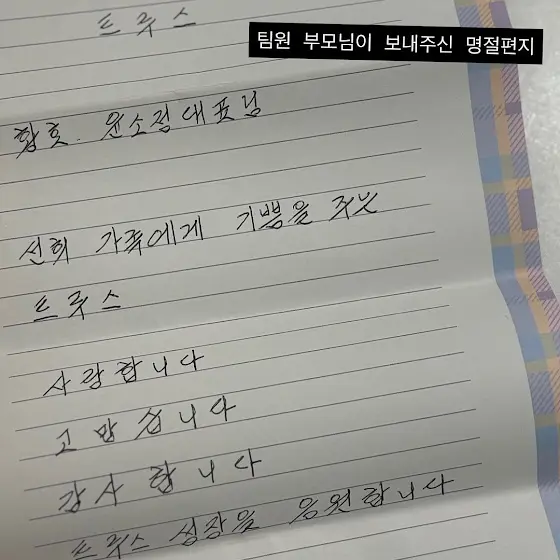 트루스
팀원 부모님이 보내주신 명절편지
황호. 윤소정대표님
선희 가족에게 기쁨을 주는
트루스
사랑합니다
고맙습니다
감사합니다
트루스 성장을 응원합니다